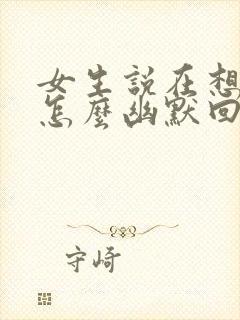 女生説在想
怎麼幽默回
守崎